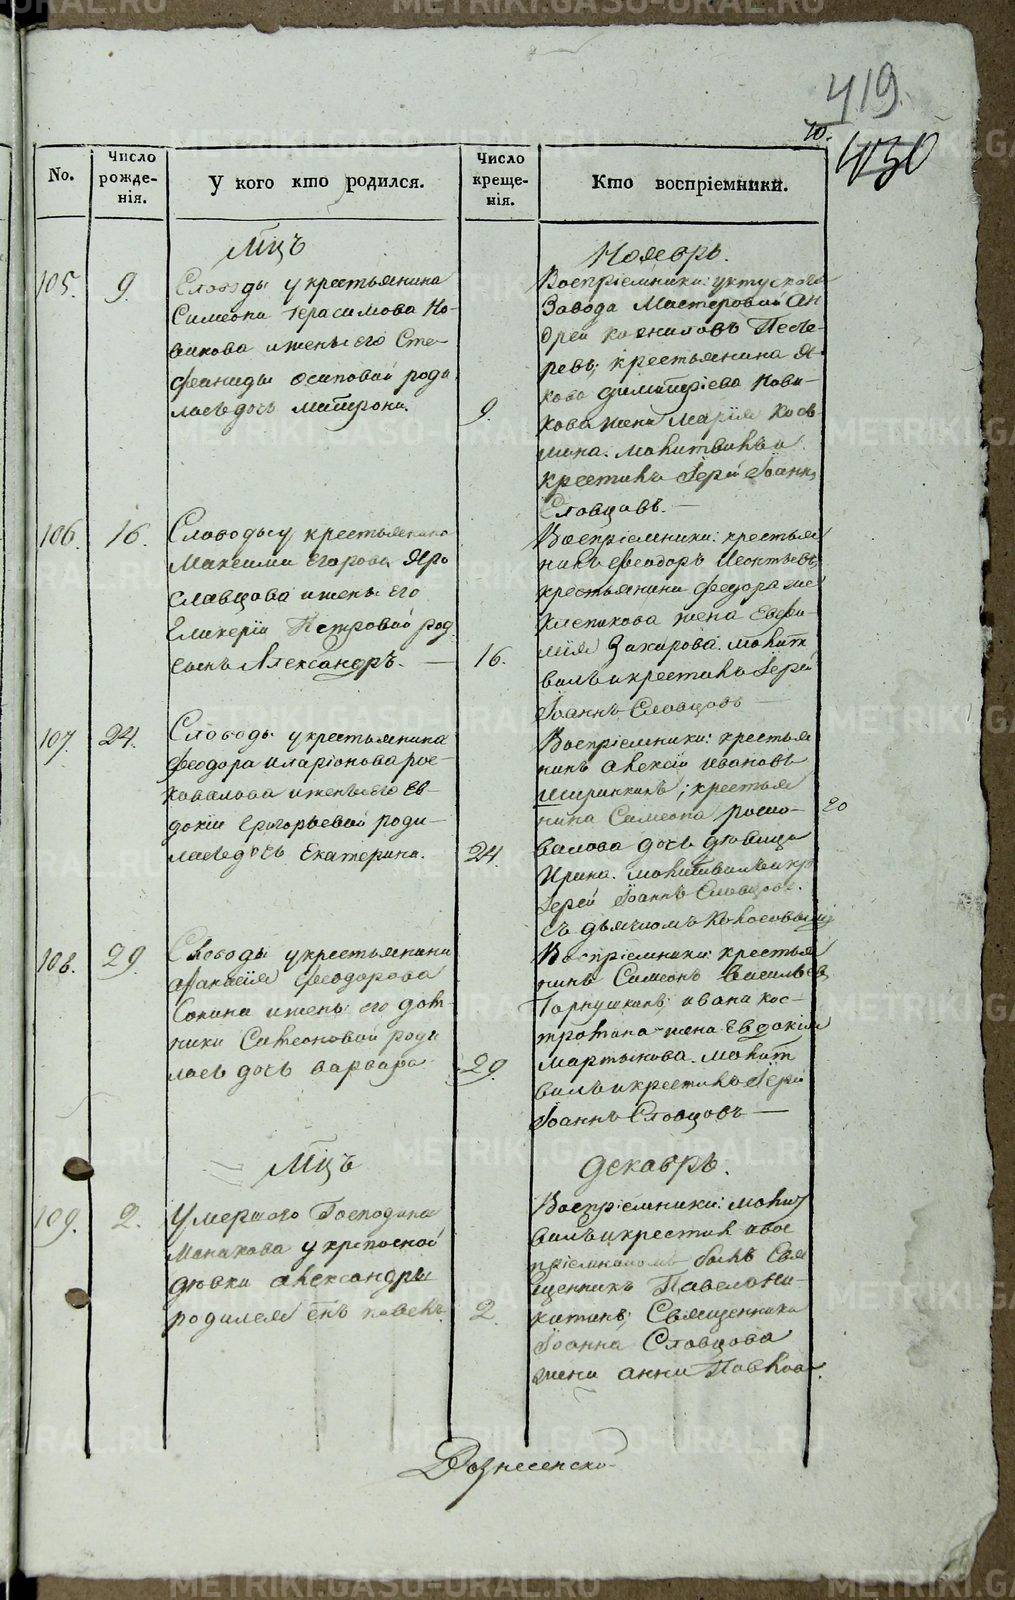 419.
10.
430
No.
Число рожде-нія.
У кого кто родился.
Число креще-нія.
Кто воспріемники.
Мцъ
Ноябрь.
105.
9.
Слободы у крестьянина
Симеона Герасимова Но-
викова и жены его Сте-
фаниды Осиповой роди
лась дочь Матрона.
9.
Воспріемники: уктускаго
Завода Мастеровой Ан
дрей
крестьянина Я-
кова Димитріева Нови-
кова жена Марія Козь
мина. молитвилъ и
крестилъ Іерей Іоаннъ
Словцовъ.
106.
16.
Слободы у крестьянина
Максима Егорова Яро
славцова и жены его
Гликеріи Петровой род.
сынъ Александръ.
16.
Воспріемники: крестья
нинъ Феодоръ Леонтьевъ
крестьянина Феодора
жена Евфи-
мія Захарова. молит
вилъ и крестилъ Іерей
Іоаннъ Словцовъ
107.
24.
Слободы у крестьянина
Феодора Иларіонова рос-
ковалова и жены его Ев-
докіи Григорьевой роди-
лась дочь Екатерина.
24.
Воспріемники: крестья
нинъ Алексѣй Ивановъ
Ширинкинъ; крестья
нина Симеона
валова дочь дѣвица
Ирина. молитвилъ и кр.
Іерей Іоаннъ Словцовъ.
съ дьячкомъ Колосовымъ
20
108.
29.
Слободы у крестьянина
Афанасія Феодорова
Сонина и жены его Дом-
ники Симеоновой роди
лась дочь Варвара
29.
Воспріемники: крестья
нинъ Симеонъ Васильевъ
Ивана Кос-
тромина жена Евдокія
Мартынова. молит
вилъ и крестилъ Іерей
Іоаннъ Словцовъ
Мцъ
Декабрь.
109.
2.
Умершаго Господина
у крѣпосной
дѣвки Александры
родился сынъ Павелъ.
2.
Воспріемники: молит
вилъ и крестилъ и вос
пріемникомъ былъ Свя
щенникъ Павелъ Ни-
китинъ; Священника
Іоанна Словцова
жена Анна Павлова.
Вознесенской
METRIKI.GASO-URAL.RU